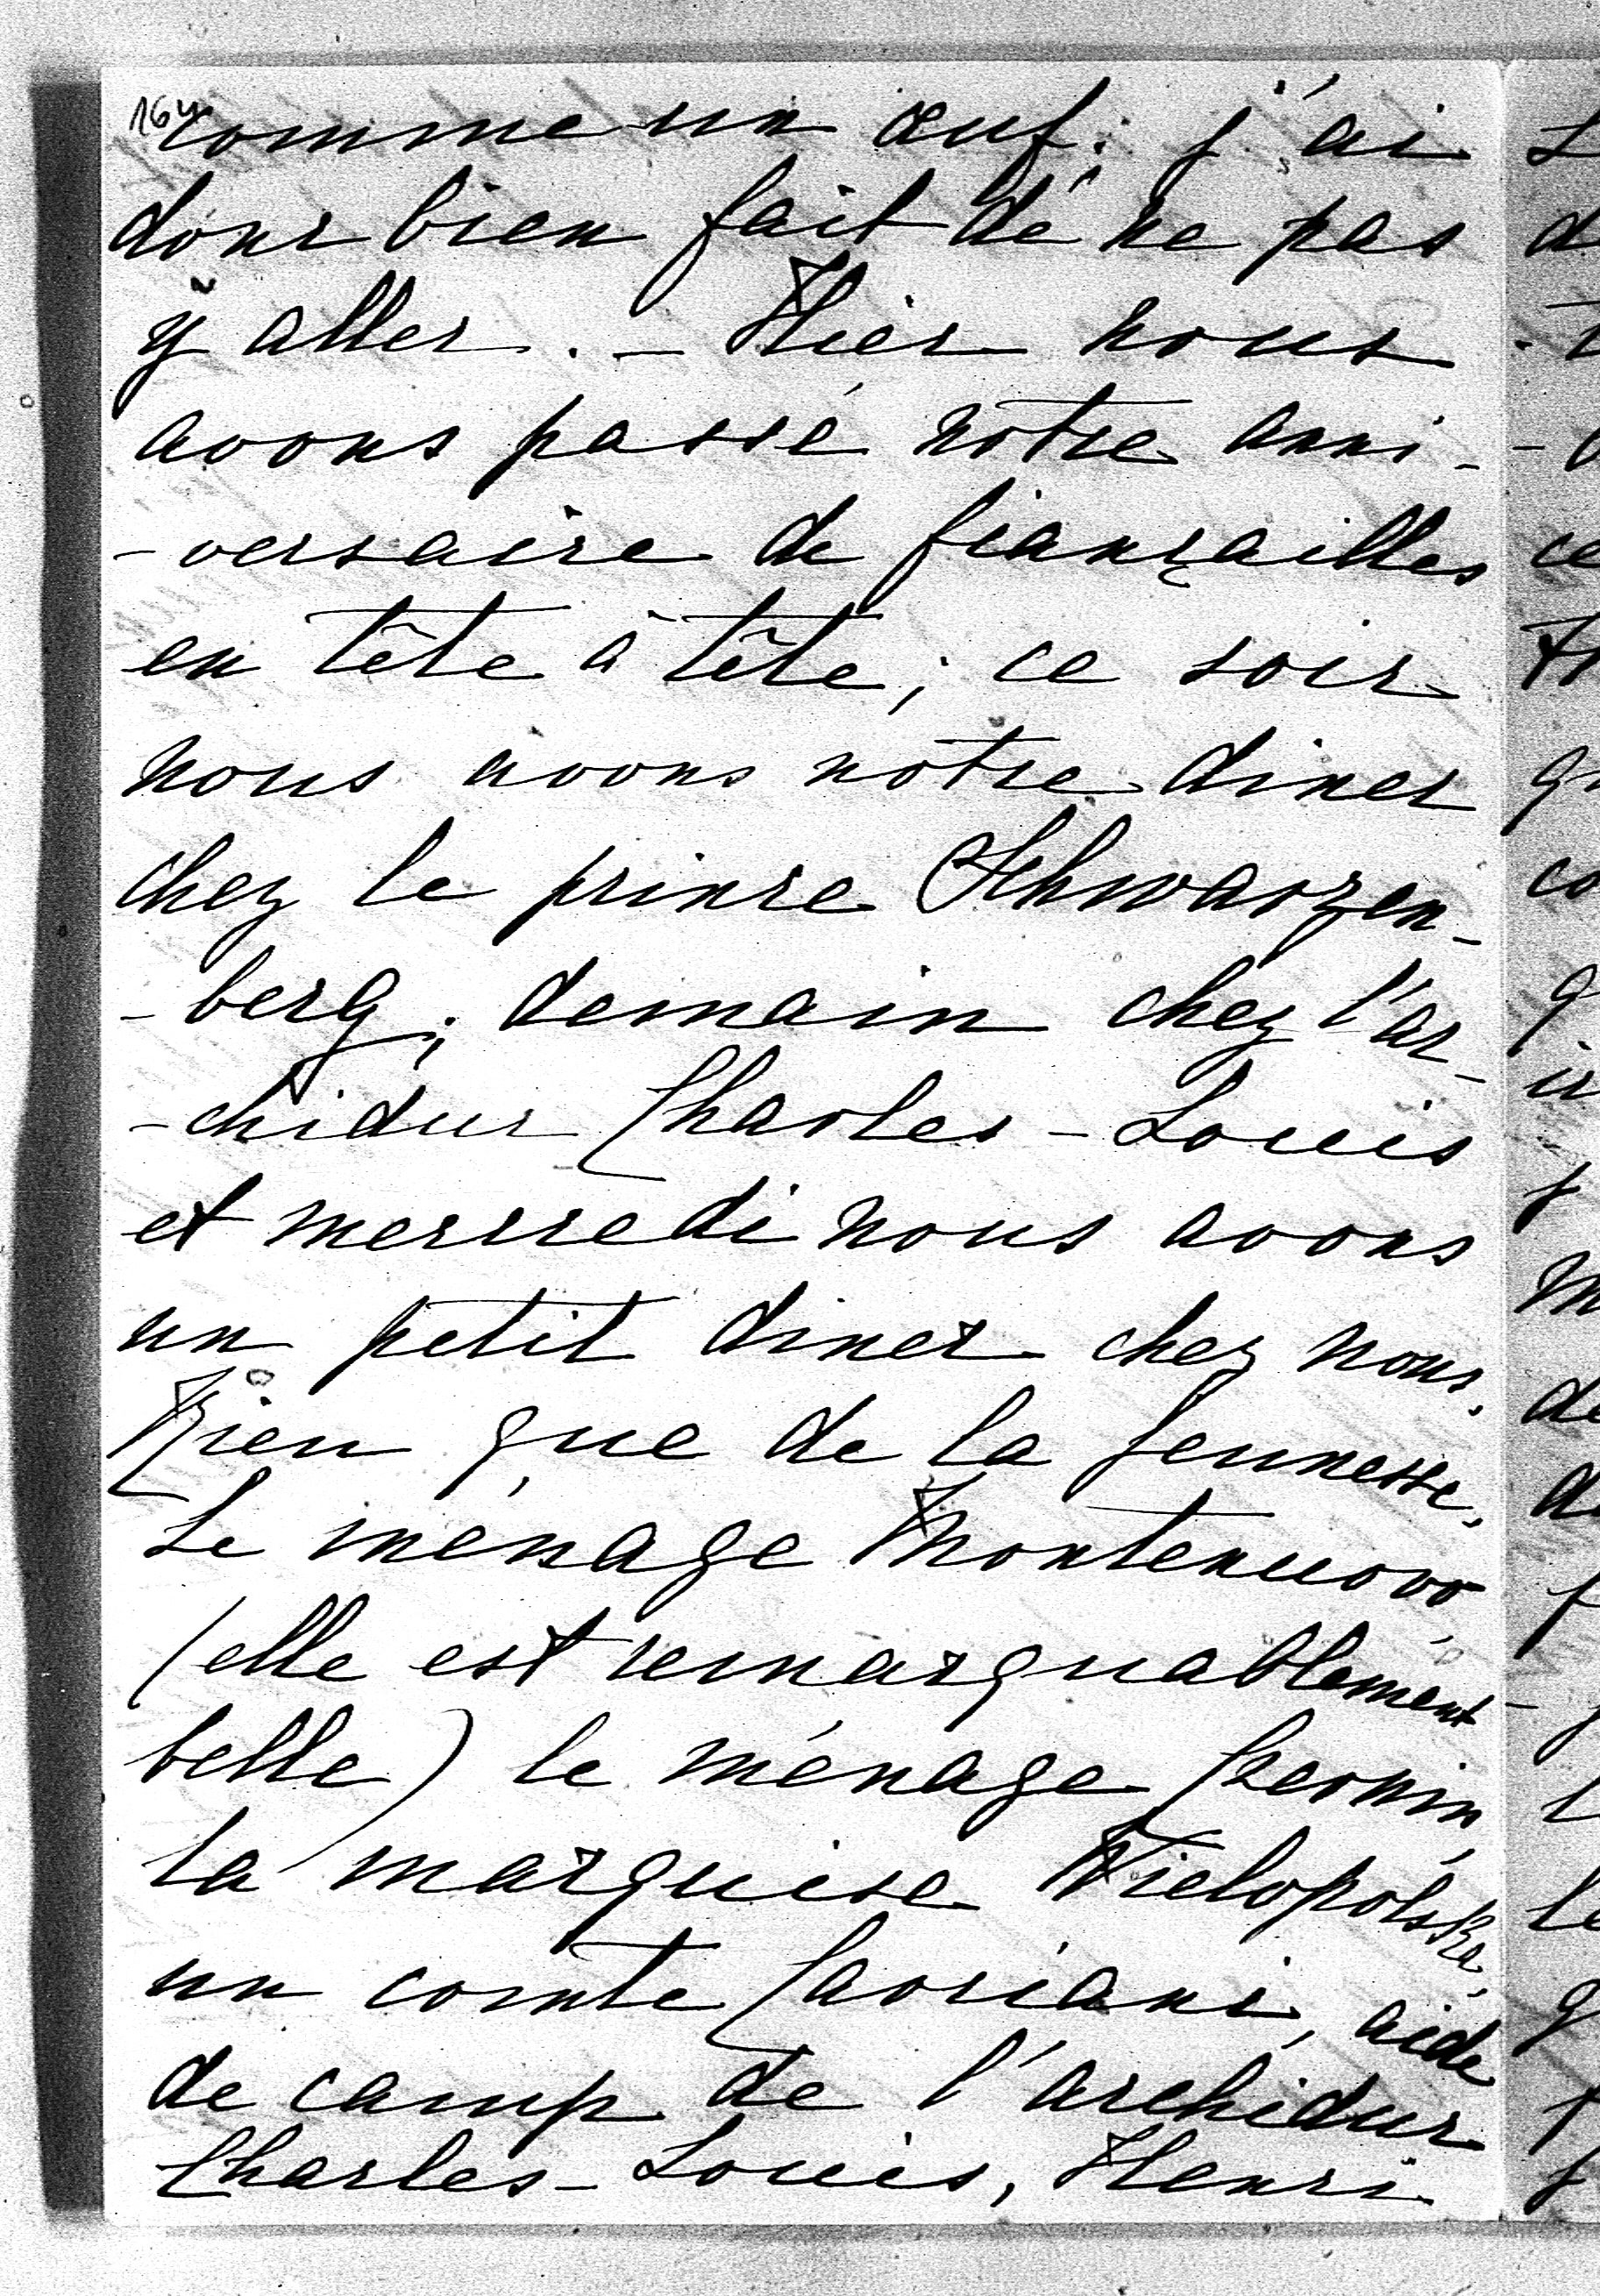 164
comme un œuf; j'ai
donc bien fait de ne pas
y aller. — Hier nous
avons passé notre anni-
-versaire de fiançailles
en tête à tête; ce soir
nous avons notre diner
chez le prince Schwarzen-
-berg; demain chez l'ar-
-chiduc Charles-Louis
et mercredi nous avons
un petit diner chez nous.
Rien que de la jeunesse.
Le ménage Montenuovo,
(elle est remarquablement
belle) le ménage Czernin,
la marquise Wielopolska,
un comte Cavriani, aide
de camp de l'archiduc
Charles-Louis, Henri